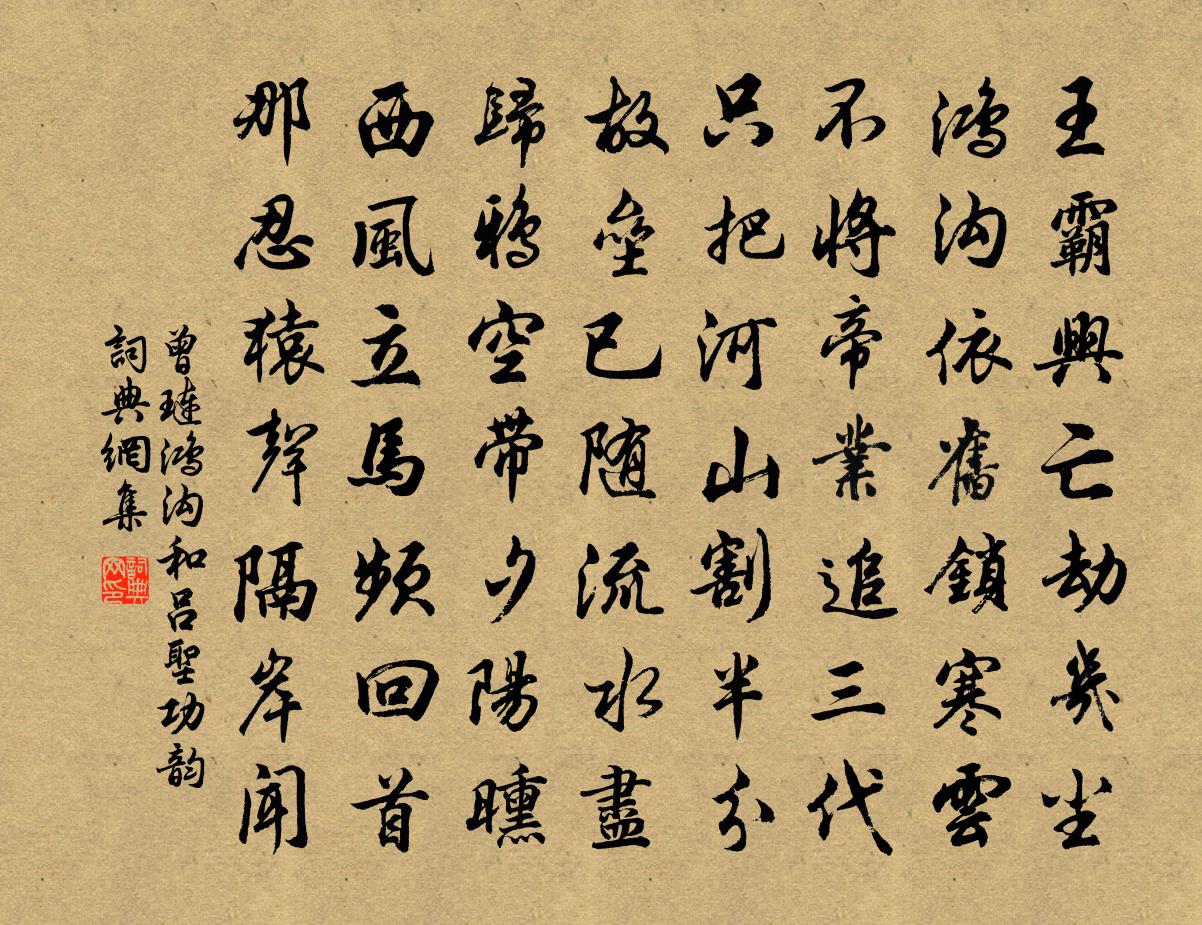 王霸興亡劫幾尘
鴻沟依舊鎖寒雲
不將帝業追三代
只把河山割半分
故壘已随流水盡
歸鴉空帶夕陽曛
西風立馬頻回首
那忍猿聲隔岸聞
曾璉鴻沟和吕聖功韵
詞典網集
詞典網印